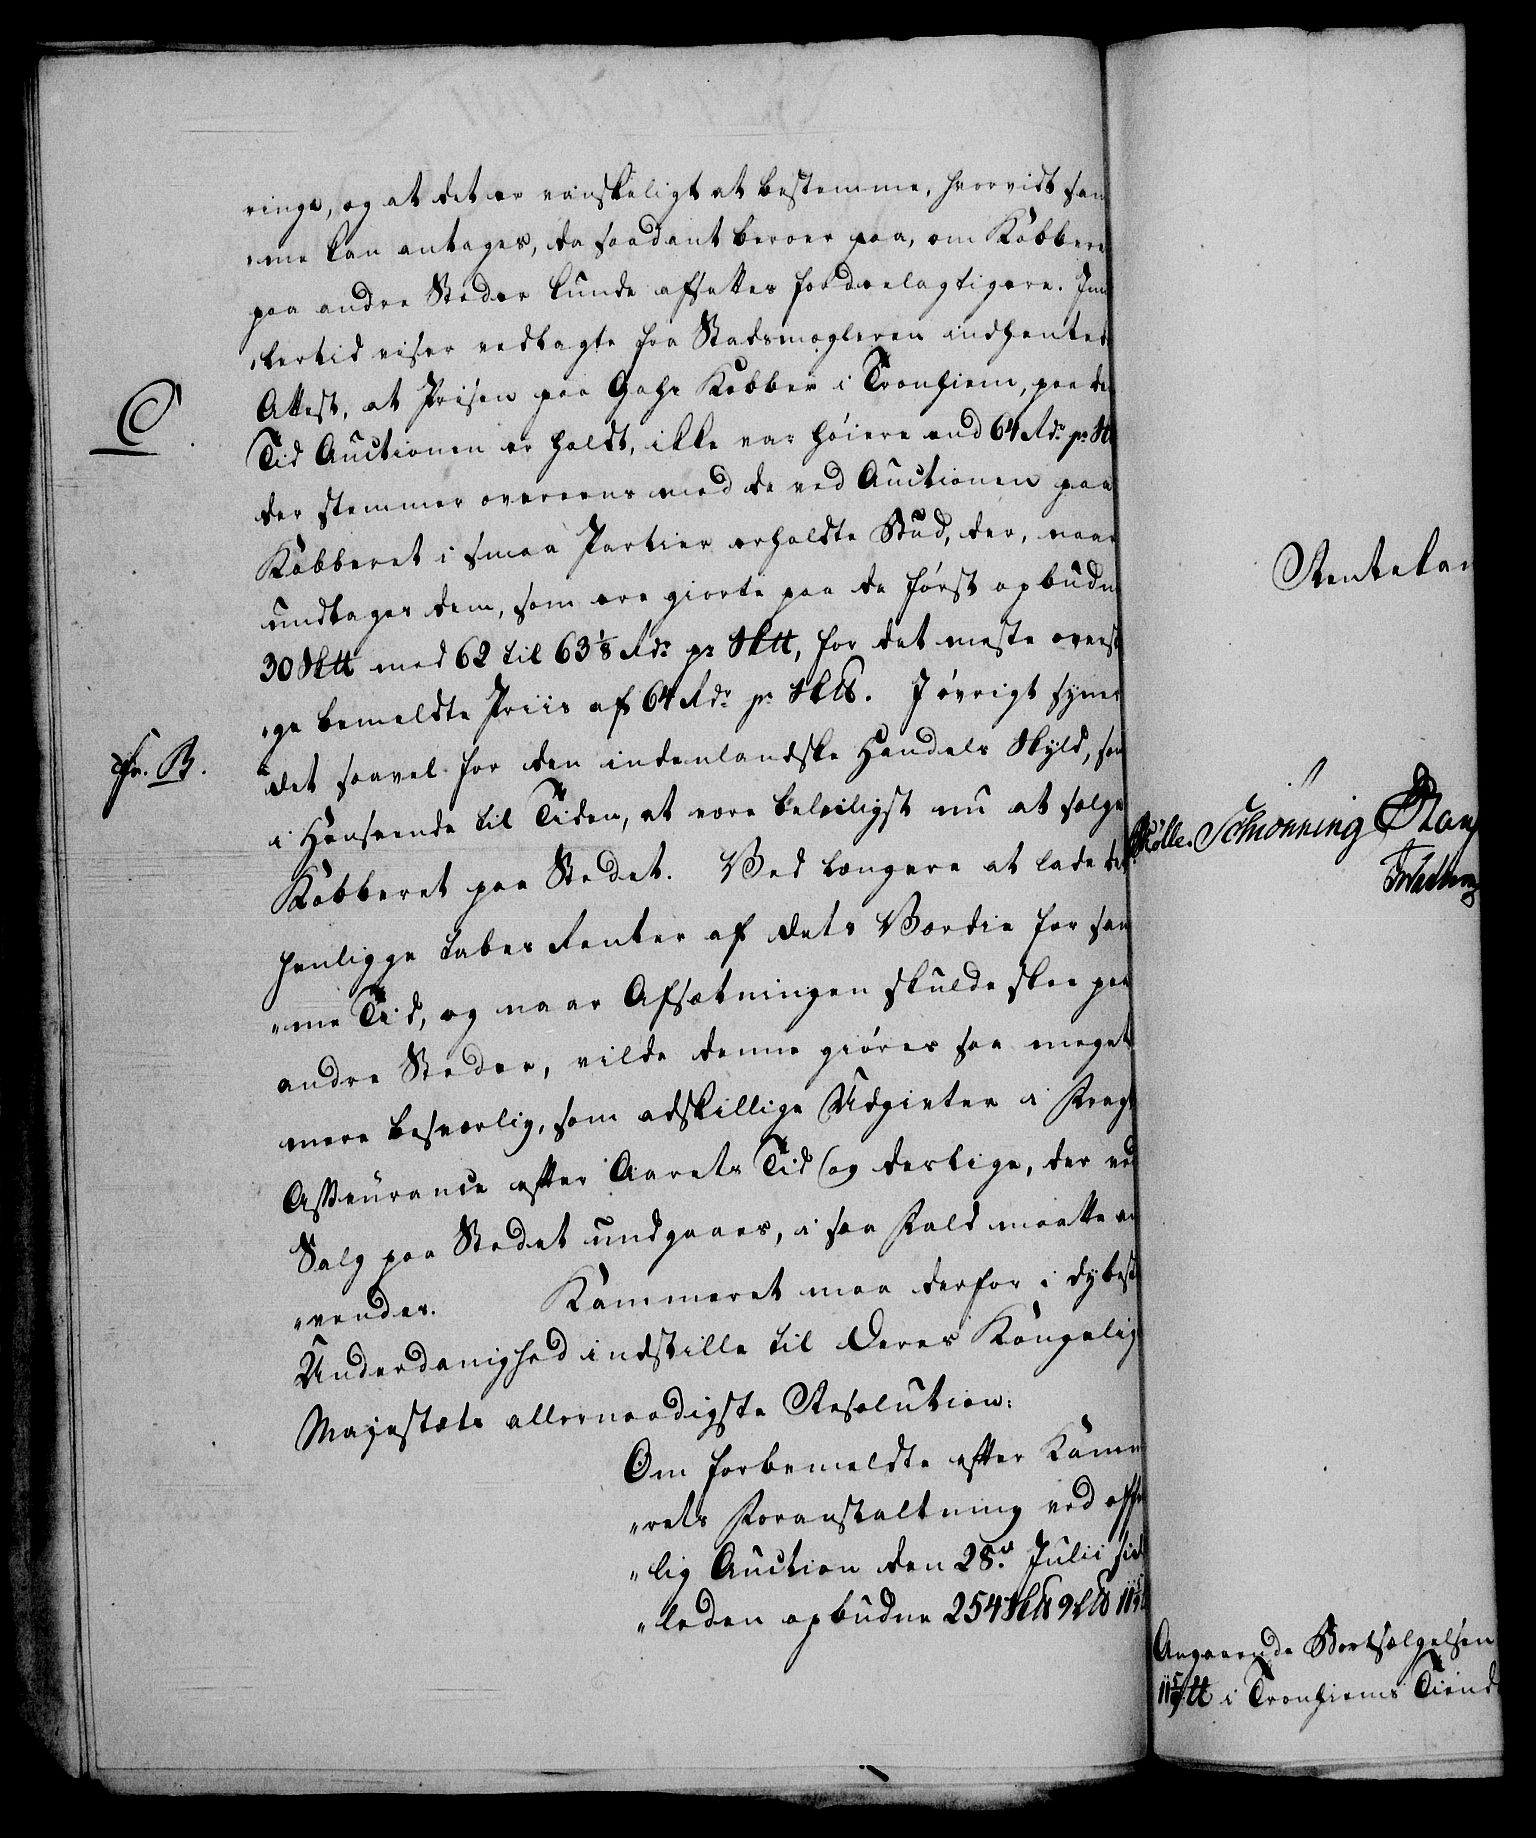 ringe, og at det er vanskeligt at bestemme, hvorvidt sam
„me kan antages, da saadant beroer paa, om Kobbere
paa andre Steder kunde afsættes fordeelagtigere. Im
„lertid viser vedlagte fra Stadsmægleren indhentede
Attest, at Prisen paa Gahr Kobber i Tronhiem, paa de
C.
Tid Auctionen er holdt, ikke var høiere end 64 Rdr pr. Sk
der stemmer overeens med de ved Auctionen paa
Kobberet i smaa Partier erholdte Bud, der, naar
undtages dem, som ere giorte paa de først opbudne
30 Sk℔ med 62 til 63⅛ Rdr pr Sk℔, for det meste overst
„ge bemeldte Priis af 64 Rdr pr Sk℔. I øvrigt synes
Fr. B.
det saavel for den indenlandske Handels Skyld, som
i Henseende til Tiden, at være beleiligst nu at sælge
Kobberet paa Stedet. Ved længere at lade det
henligge tabes Renter af dets Værdie for sam
„me Tid, og naar Afsætningen skulde skee paa
andre Steder, vilde denne giøres saa meget
mere besværlig, som adskillige Udgivter i Fragt
Assurance efter Aarets Tid og deslige, der ved
Salg paa Stedet undgaaes, i saa Fald maatte an
„vendes. Kammeret maa derfor i dybeste
Underdanighed indstille til Deres Kongelig
Majestæts allernaadigste Resolution:
Om forbemeldte efter Kamme
„rets Foranstaltning ved offe
„lig Auction den 28de Julii sid
„leden opbudne 254 Sk℔ 9 L℔ 11
Rentekam
Mølle. Schiønning
Angaaende Bortsælgelsen
℔ i Tronhiems Tiend